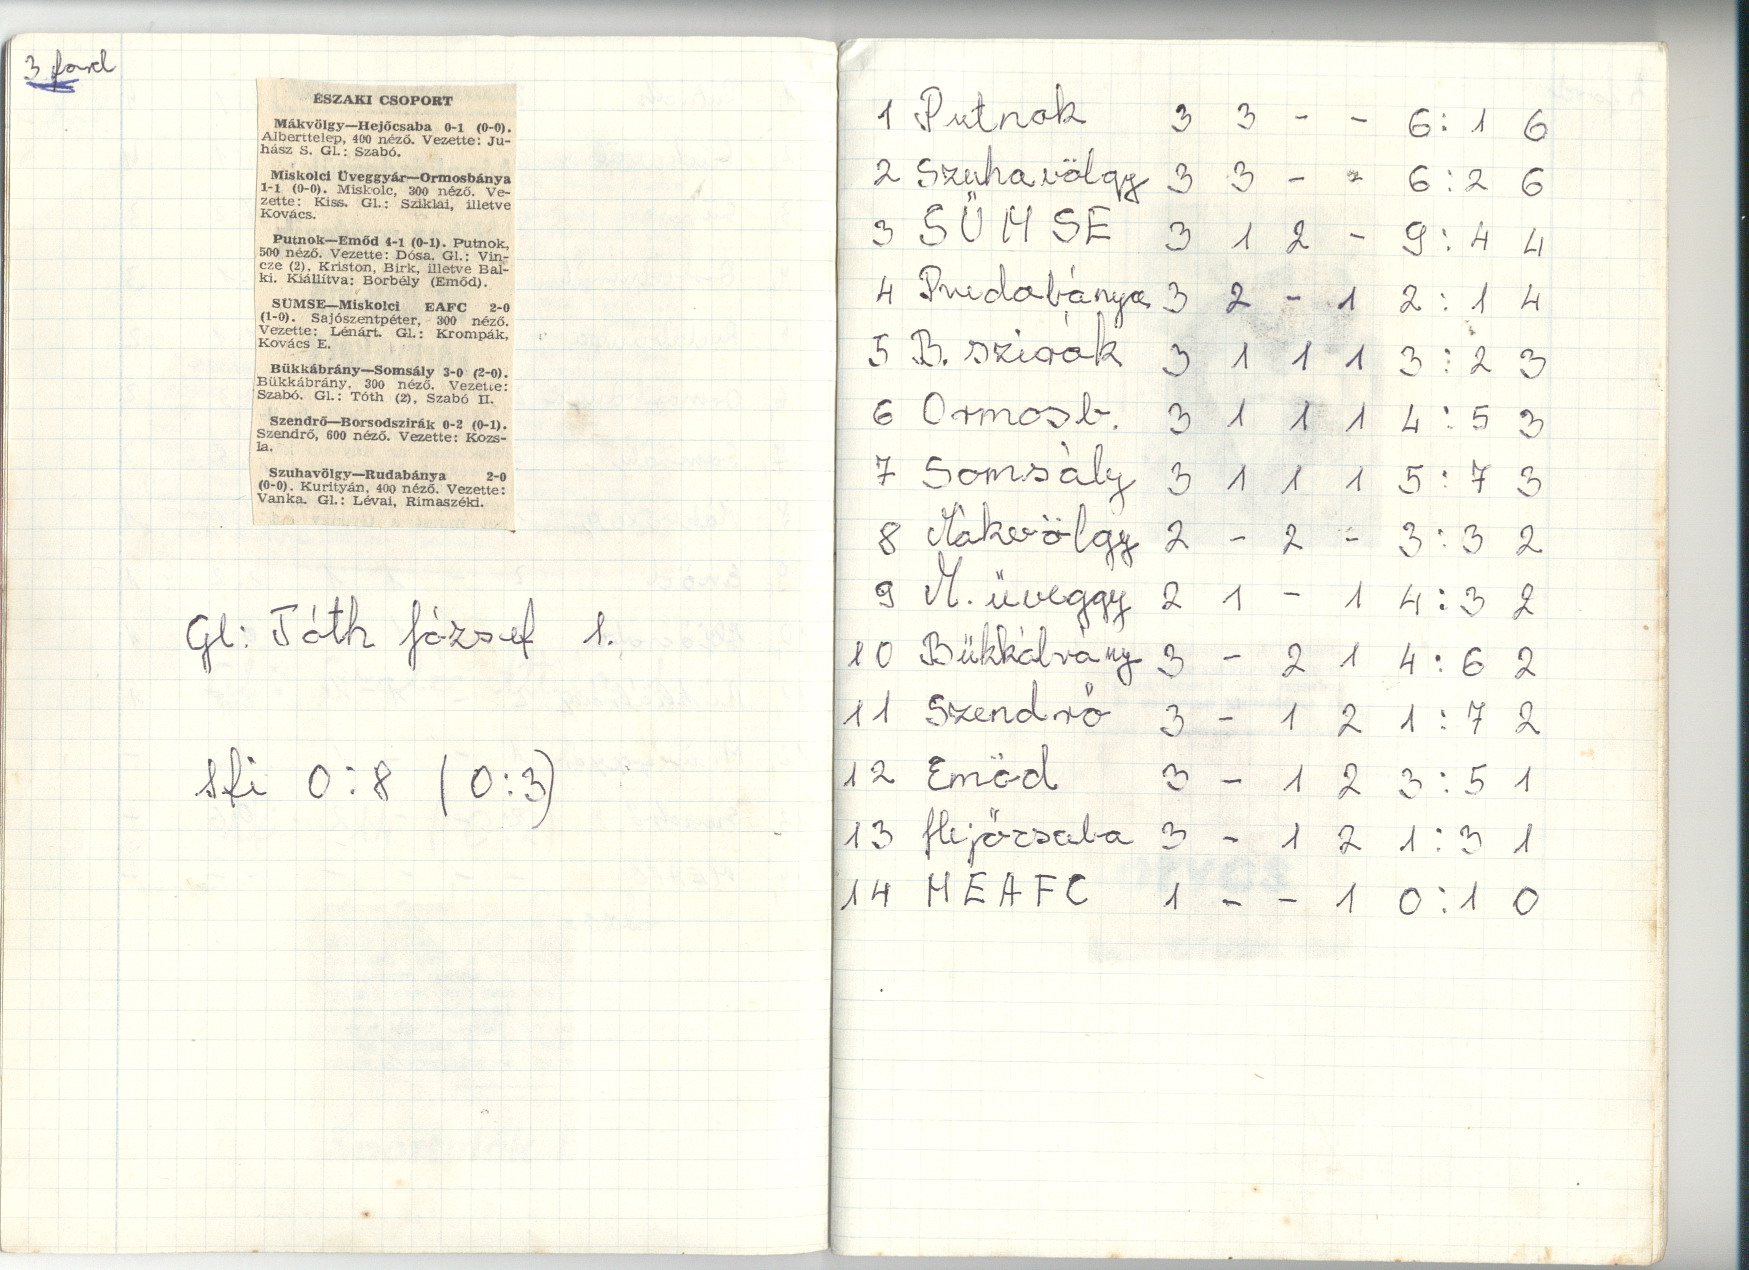 3 ford
ÉSZAKI CSOPORT
Mákvölgy—Hejőcsaba 0-1 (0-0).
Alberttelep, 400 néző. Vezette: Ju-
hász S. Gl.: Szabó.
Miskolci Üveggyár—Ormosbánya
1-1 (0-0). Miskolc, 300 néző. Ve-
zette: Kiss. Gl.: Sziklai, illetve
Kovács.
Putnok—Emőd 4-1 (0-1). Putnok,
500 néző. Vezette: Dósa. Gl.: Vin-
cze (2), Kriston, Birk, illetve Bal-
ki. Kiállítva: Borbély (Emőd).
SÜMSE—Miskolci EAFC 2-0
(1-0). Sajószentpéter, 300 néző.
Vezette: Lénárt. Gl.: Krompák,
Kovács E.
Bükkábrány—Somsály 3-0 (2-0).
Bükkábrány, 300 néző. Vezette:
Szabó. Gl.: Tóth (2), Szabó II.
Szendrő—Borsodszirák 0-2 (0-1).
Szendrő, 600 néző. Vezette: Kozs-
la.
Szuhavölgy—Rudabánya 2-0
(0-0). Kurityán, 400 néző. Vezette:
Vanka. Gl.: Lévai, Rimaszéki.
Gl: Tóth József 1.
Ifi 0:8 (0:3)
1 Putnok 3 3 - - 6:1 6
2 Szuhavölgy 3 3 - - 6:2 6
3 SÜMSE 3 1 2 - 9:4 4
4 Rudabánya 3 2 - 1 2:1 4
5 B. szirák 3 1 1 1 3:2 3
6 Ormosb. 3 1 1 1 4:5 3
7 Somsály 3 1 1 1 5:7 3
8 Mákvölgy 2 - 2 - 3:3 2
9 M. üveggy 2 1 - 1 4:3 2
10 Bükkábrány 3 - 2 1 4:6 2
11 Szendrő 3 - 1 2 1:7 2
12 Emőd 3 - 1 2 3:5 1
13 Hejőcsaba 3 - 1 2 1:3 1
14 MEAFC 1 - - 1 0:1 0